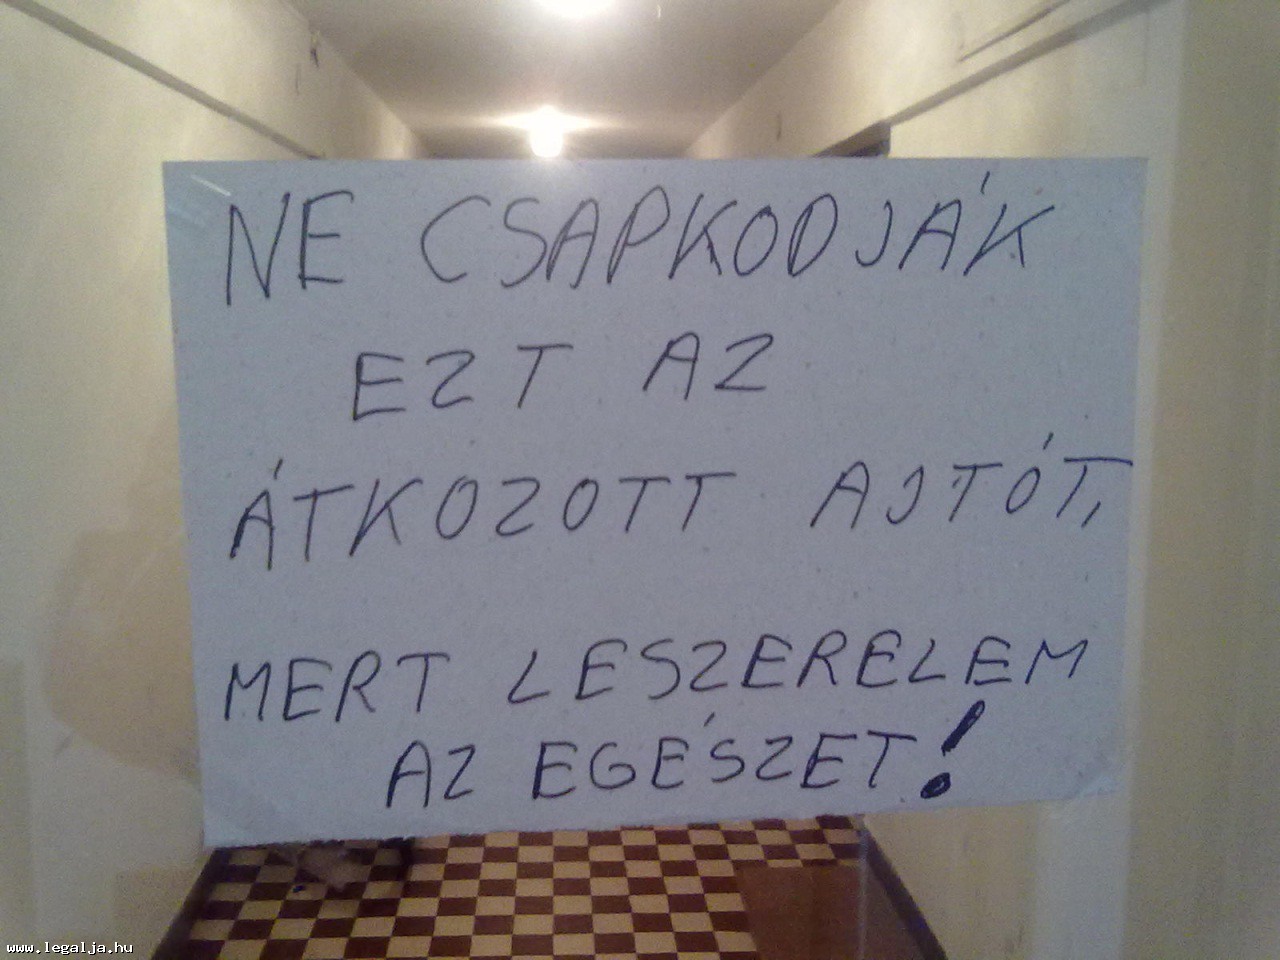 NE CSAPKODJÁK
EZT AZ
ÁTKOZOTT AJTÓT,
MERT LESZERELEM
AZ EGÉSZET!
www.legalja.hu